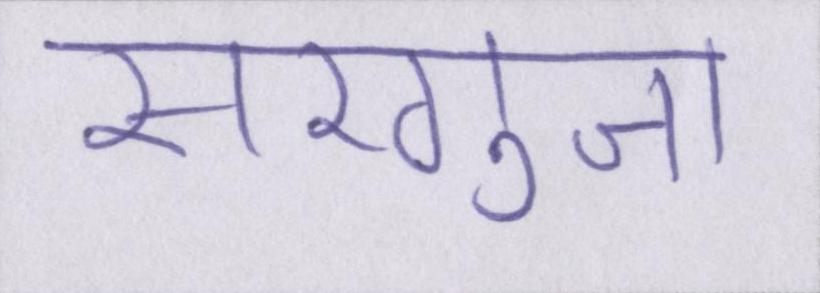 सरगुजा